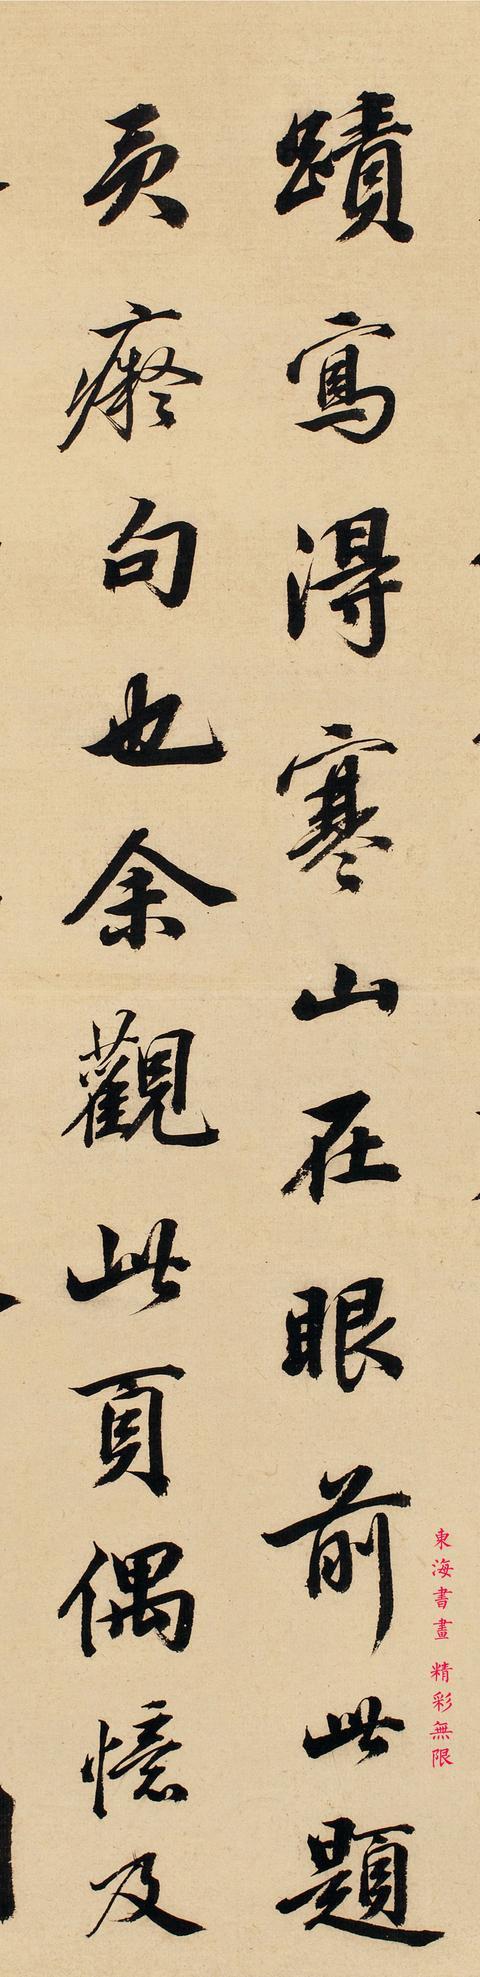 蹟寫得寒山在眼前此題
癡句也余觀此頁偶憶及
東海書畫 精彩無限